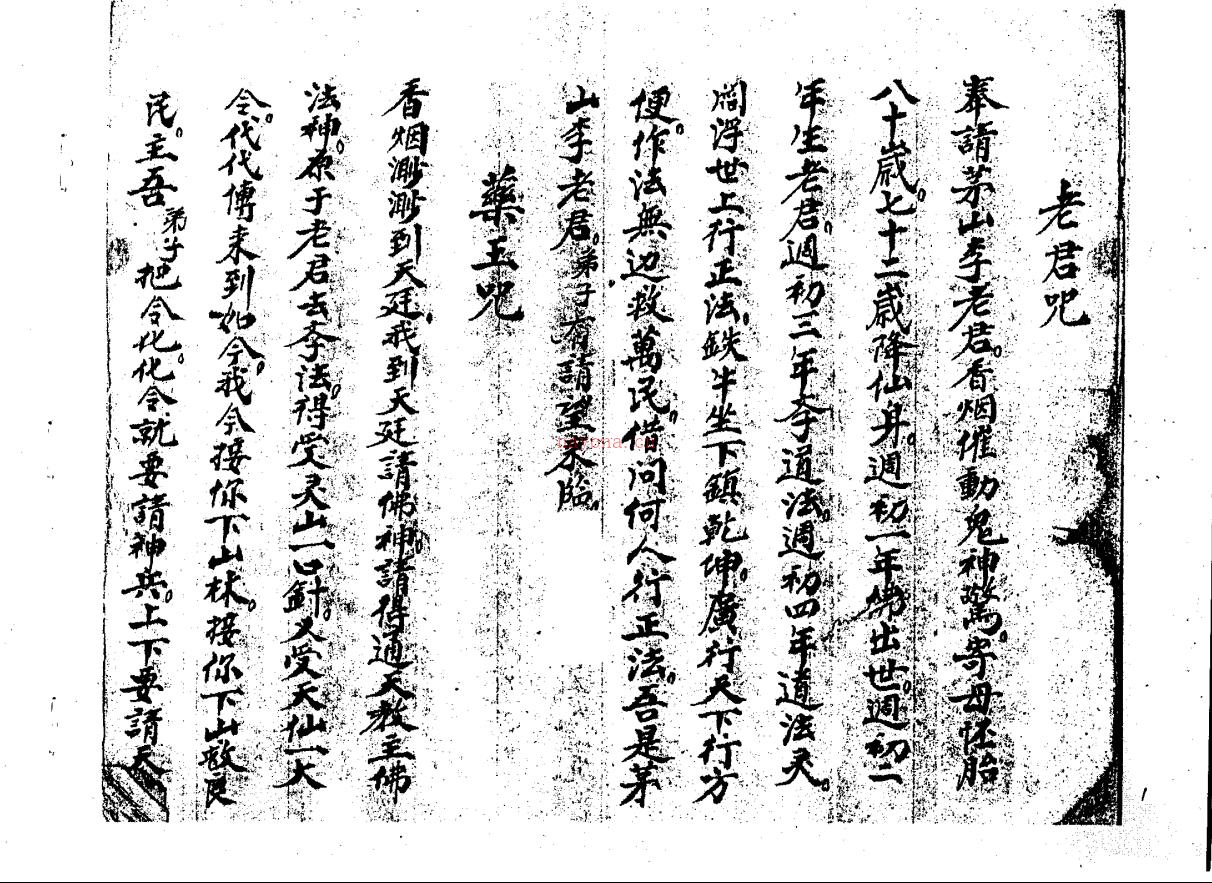 老君咒
奉請茅山李老君。香烟催動鬼神驚。寄母怀胎
八十歲。七十二歲降仙身。週初一年佛出世。週初二
年生老君。週初三年李道法。週初四年道法灵。
閻浮世上行正法。鉄牛坐下鎮乾坤。廣行天下行方
便。作法無边救萬民。借問何人行正法。吾是茅
山李老君。弟子有請望來臨。
藥王咒
香烟渺渺到天廷。我到天廷請佛神。請得通天教主佛
法神。原于老君去李法。得受灵山一口針。又受天仙一大
令。代代傳来到如今。我今接你下山林。接你下山救良
民。主吾弟子把令化。化令就要請神兵。上下要請天
1